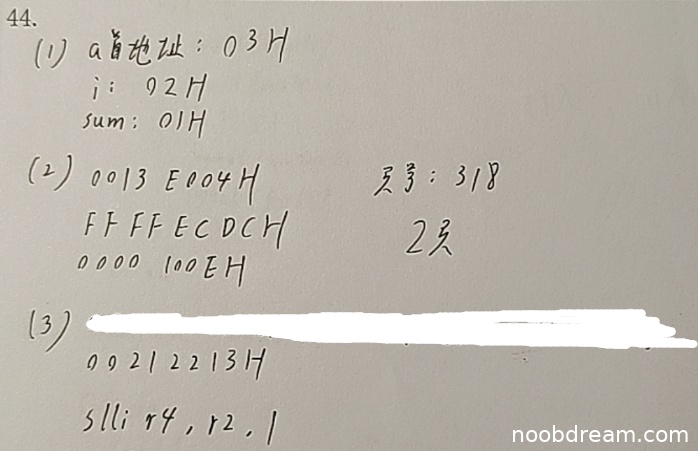 44.
(1) a首地址: 03H
i: 02H
sum: 01H
(2) 0013 E004H
FFFF ECDCH
0000 100EH
页号: 318
2页
(3)
00212213H
slli r4, r2, 1
noobdream.com